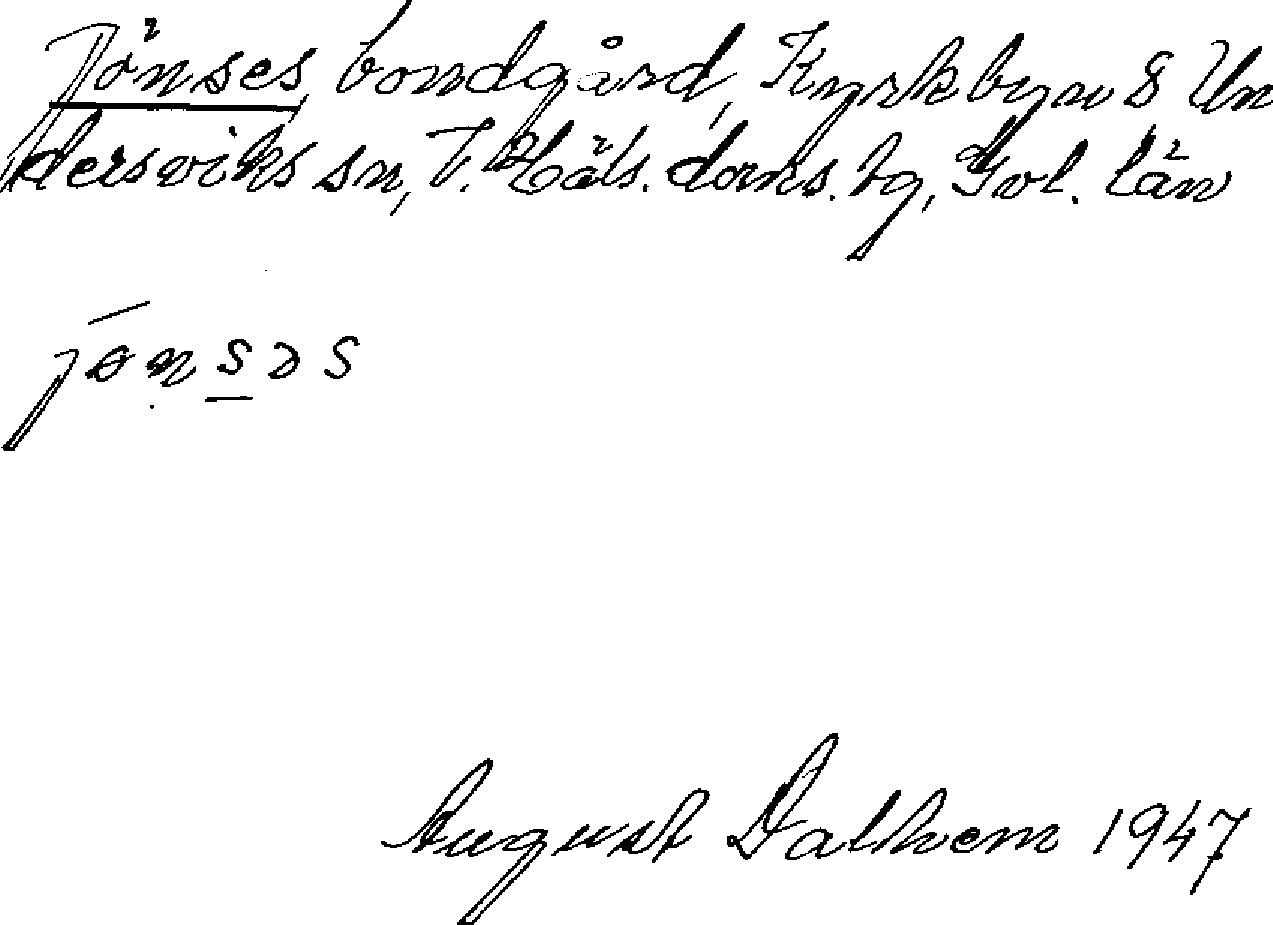 Jönses, bondgård, Kyrkbyn 8 Un
dersviks sn, V. Häls. doms. bg, Gvl. län
jönsəs
August Dalhem 1947